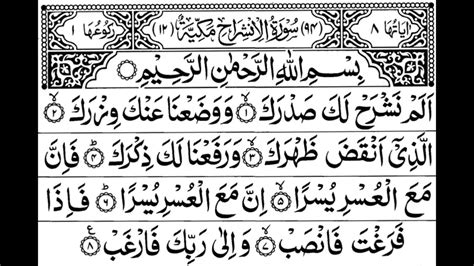 اٰيَاتُهَا ٨ (٩٤) سُوْرَةُ الْاِنْشِرَاحِ مَكِّيَّةٌ (١٢) رُكُوْعُهَا ١
بِسْمِ اللّٰهِ الرَّحْمٰنِ الرَّحِيْمِ
اَلَمْ نَشْرَحْ لَكَ صَدْرَكَ ۝١ وَوَضَعْنَا عَنْكَ وِزْرَكَ ۝٢
الَّذِيْٓ اَنْقَضَ ظَهْرَكَ ۝٣ وَرَفَعْنَا لَكَ ذِكْرَكَ ۝٤ فَاِنَّ
مَعَ الْعُسْرِ يُسْرًا ۝٥ اِنَّ مَعَ الْعُسْرِ يُسْرًا ۝٦ فَاِذَا
فَرَغْتَ فَانْصَبْ ۝٧ وَاِلٰى رَبِّكَ فَارْغَبْ ۝٨ ع